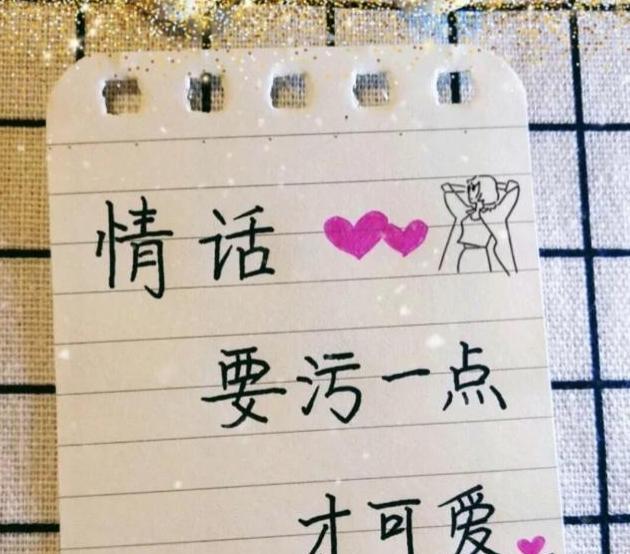 情话
要污一点
才可爱